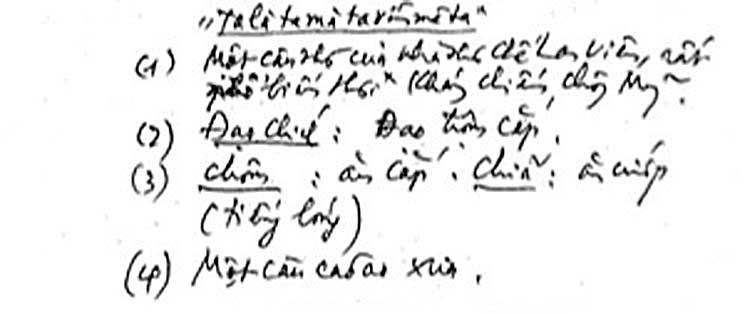 "Ta là ta mà ta vẫn mê ta"
(1) Một câu thơ của nhà thơ Chế Lan Viên, rất
phổ biến thời kháng chiến chống Mỹ.
(2) Đạo chích: Đạo trộm cắp.
(3) chôm: ăn cắp. chĩa: ăn cướp
(tiếng lóng)
(4) Một câu ca dao xưa.